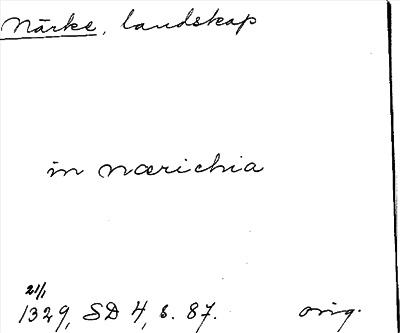 Närke, landskap
in Nærichia
21/1
1329, SD 4, s. 87. orig.